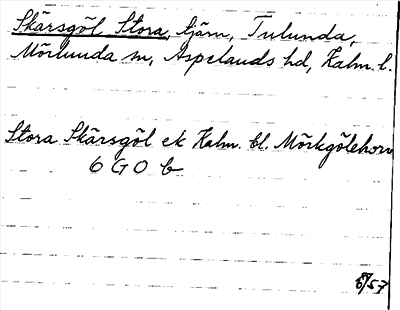 Skärsgöl Stora, tjärn, Tulunda,
Mörlunda sn, Aspelands hd, Kalm. l.
Stora Skärsgöl ek Kalm. bl. Mörkgölehorv
6 G O b
6/57